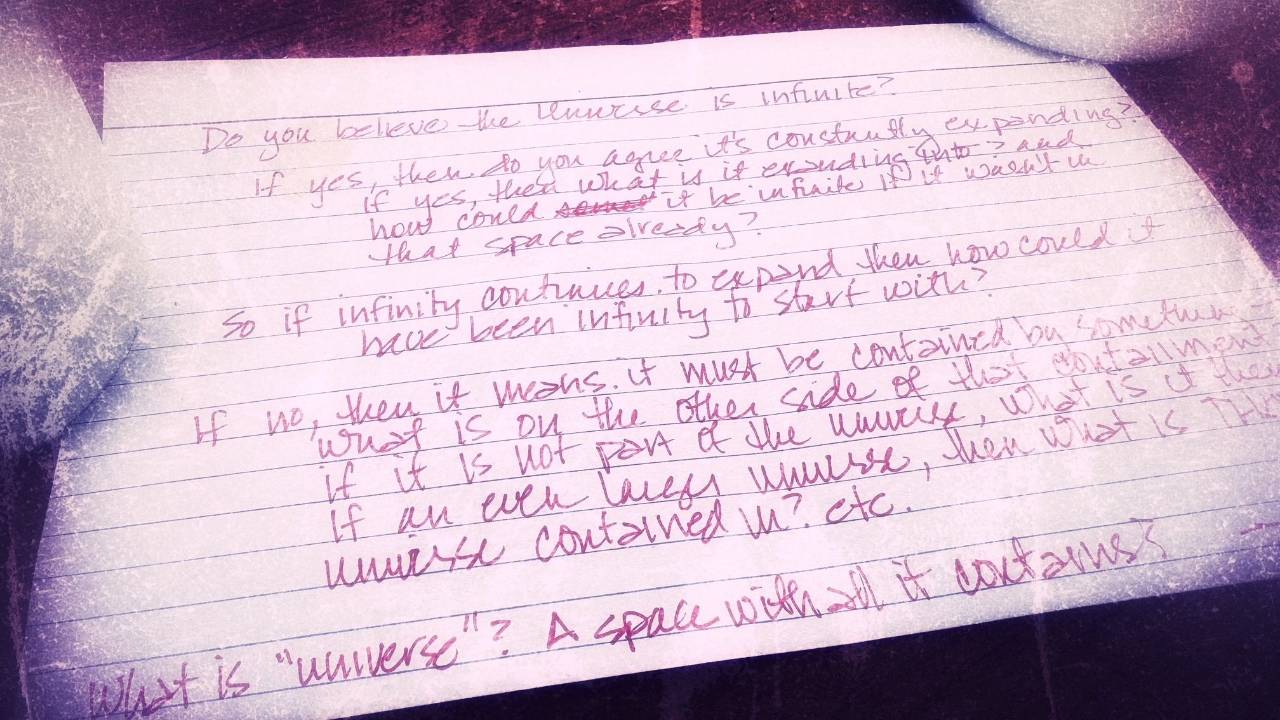 Do you believe the Universe is infinite?
If yes, then do you agree it's constantly expanding?
if yes, then what is it expanding into? and
how could it be infinite if it wasn't in
that space already?
So if infinity continues to expand then how could it
have been infinity to start with?
If no, then it means it must be contained by
what is on the other side of that
if it is not part of the universe, what is it then
If an even larger universe, then what is
universe contained in? etc.
What is "universe"? A space with all it contains?